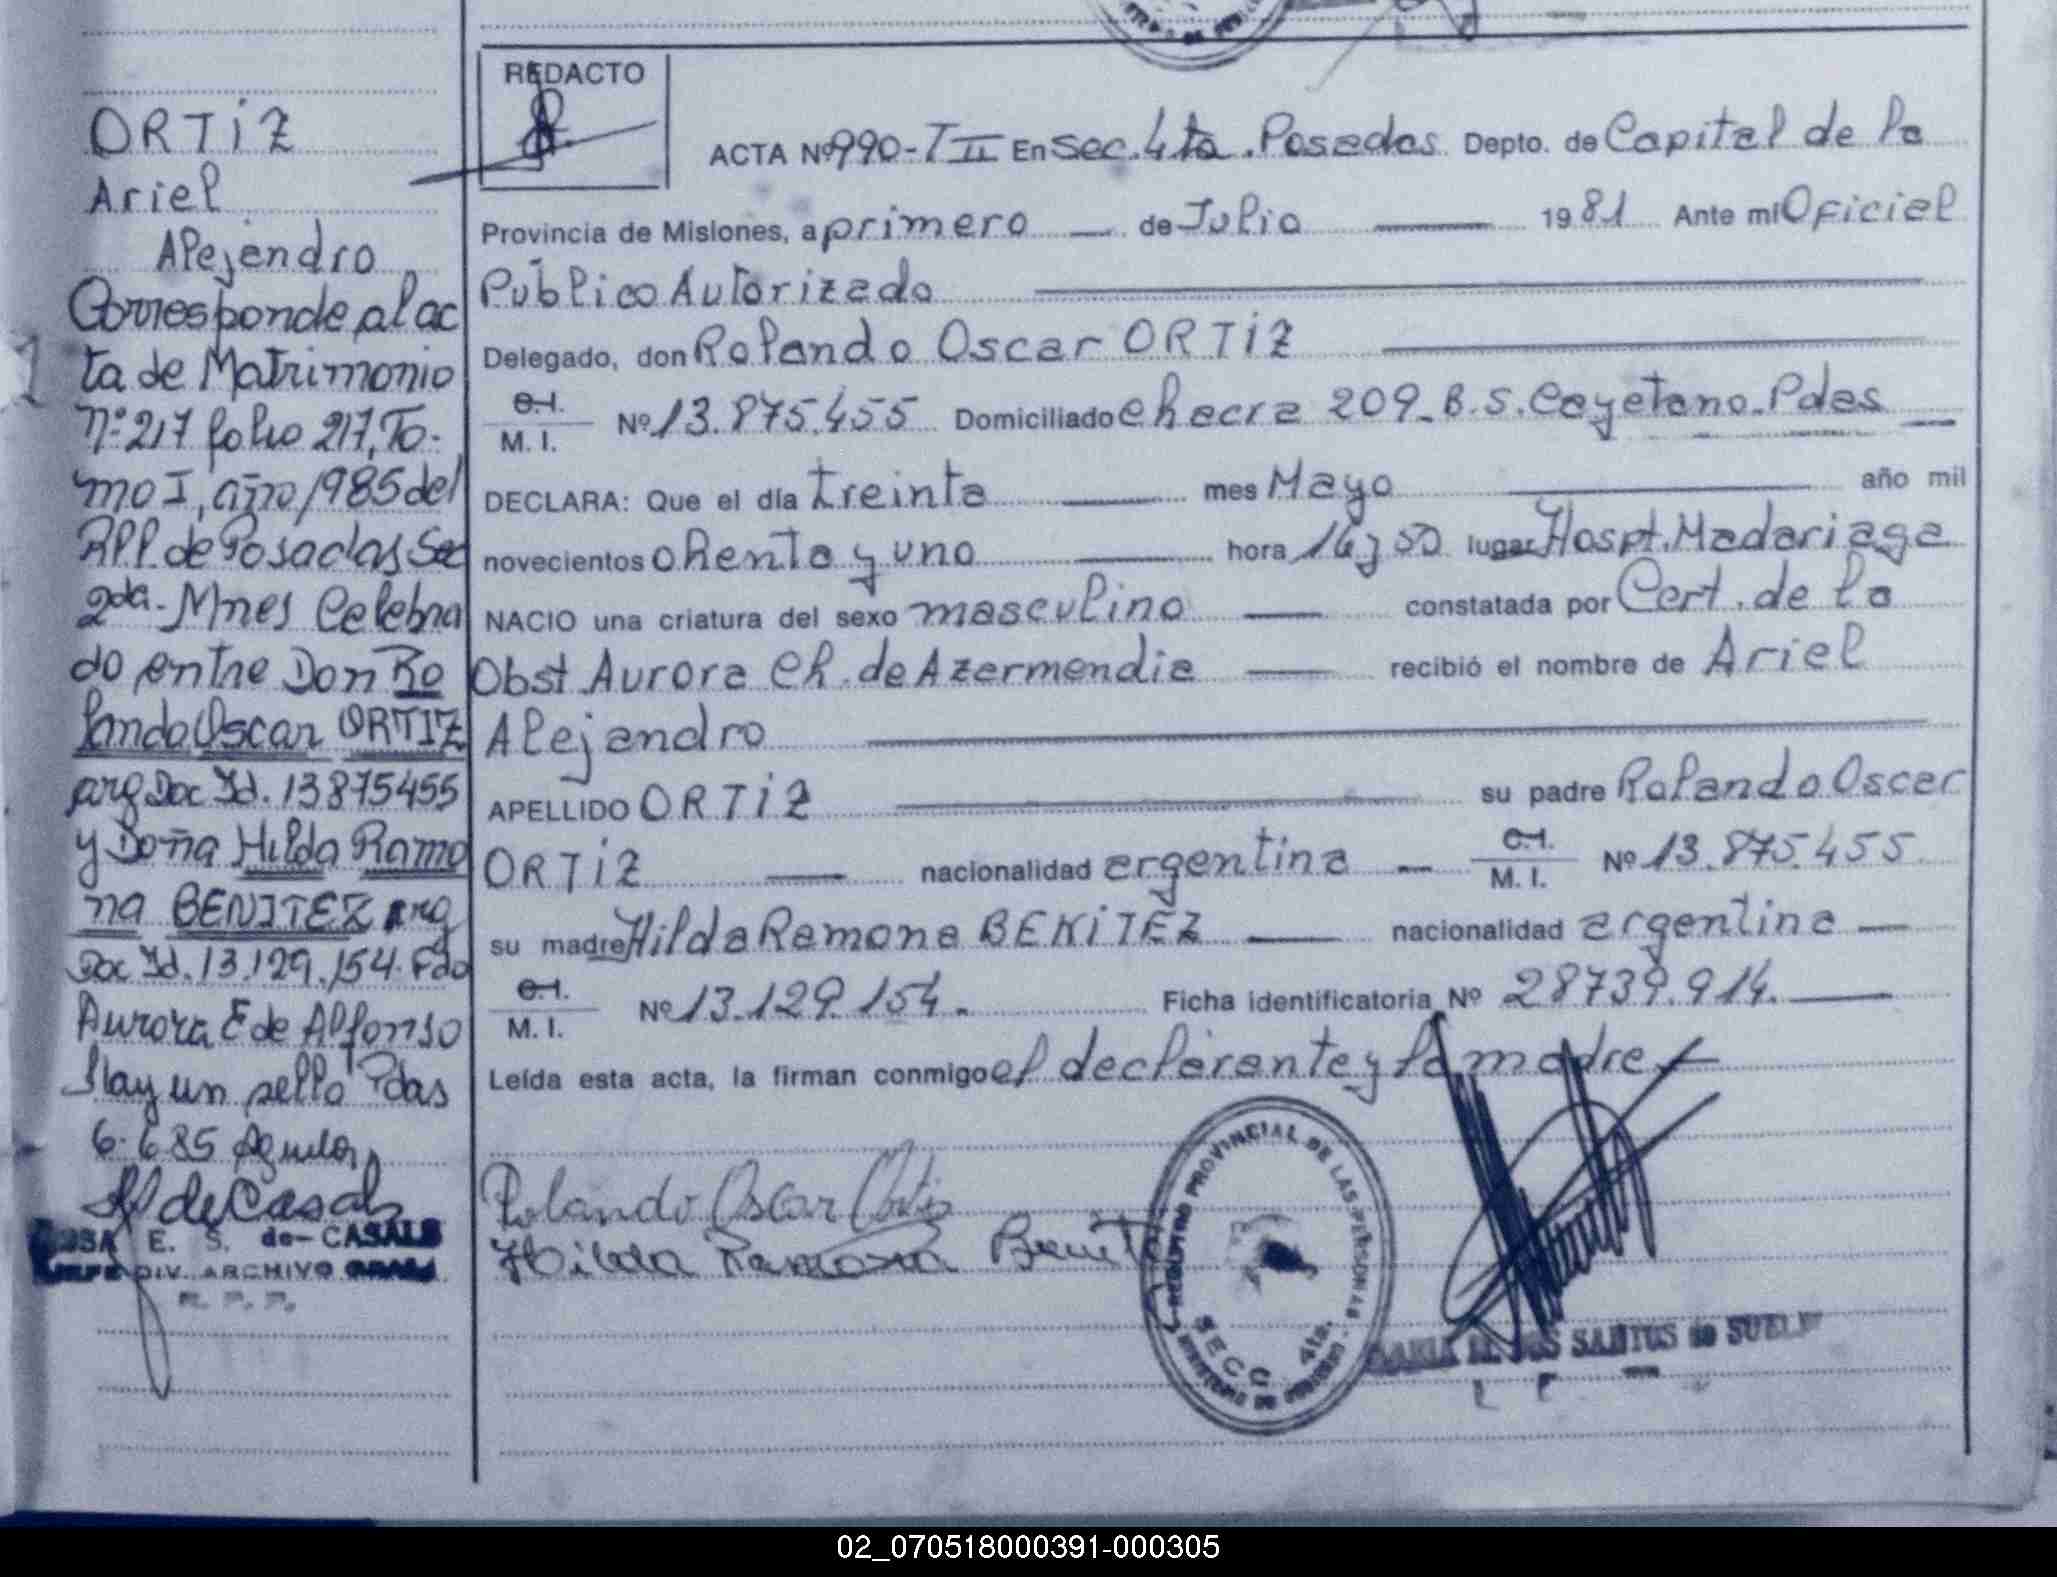 ORTiZ
Ariel
Alejandro
Corresponde al ac
ta de Matrimonio
Nº 217 folio 217, To-
mo I, año 1985 del
R.P.P. de Posadas Sec
2da - Mnes Celebra
do entre Don Ro
lando Oscar ORTIZ
arg Doc Id. 13875455
y Doña Hilda Ramo
na BENITEZ arg
Doc Id. 13.129.154. Fdo
Aurora E de Alfonso
Hay un sello Pdas
6-6-85
de Casals
E. S. de CASALS
DIV. ARCHIVO GRAL
R. P. P.
REDACTO
ACTA Nº 990-T II En Sec. 4ta. Posadas Depto. de Capital de la
Provincia de Misiones, a primero de Julio 19 81 Ante mi Oficial
Público Autorizado
Delegado, don Rolando Oscar ORTiZ
C.I.
M. I. Nº 13.875.455 Domiciliado Chacra 209_B.S.Cayetano_Pdas
DECLARA: Que el día treinta mes Mayo año mil
novecientos ohenta y uno hora 16 y 50 lugar Hospt. Madariaga
NACIO una criatura del sexo masculino constatada por Cert. de la
Obst. Aurora Ch. de Azarmendia recibió el nombre de Ariel
Alejandro
APELLIDO ORTiZ su padre Rolando Oscar
ORTiZ nacionalidad argentina C.I.
M. I. Nº 13.875.455
su madre Hilda Ramona BENiTEZ nacionalidad argentina
C.I.
M. I. Nº 13.129.154. Ficha identificatoria Nº 28739.914.
Leída esta acta, la firman conmigo el declarante y la madre
Rolando Oscar Ortiz
Hilda Ramona Benit
REGISTRO PROVINCIAL DE LAS PERSONAS
SECC 4ta.
SANTOS de SUELD
02_070518000391-000305